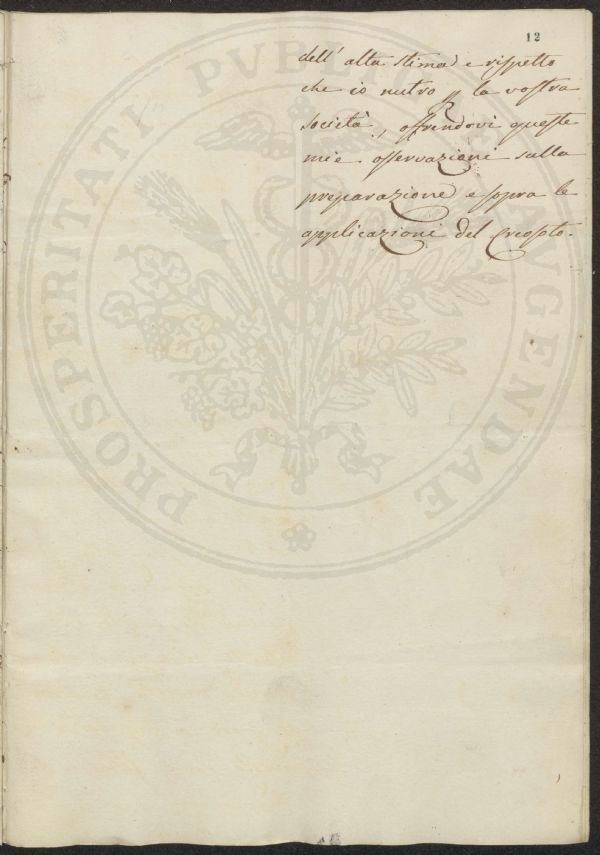 12
dell' alta stima e rispetto
che io nutro p la vostra
società, offrendovi queste
mie osservazioni sulla
preparazione e sopra le
applicazioni del Creosoto.
PROSPERITATI PUBLICAE AUGENDAE